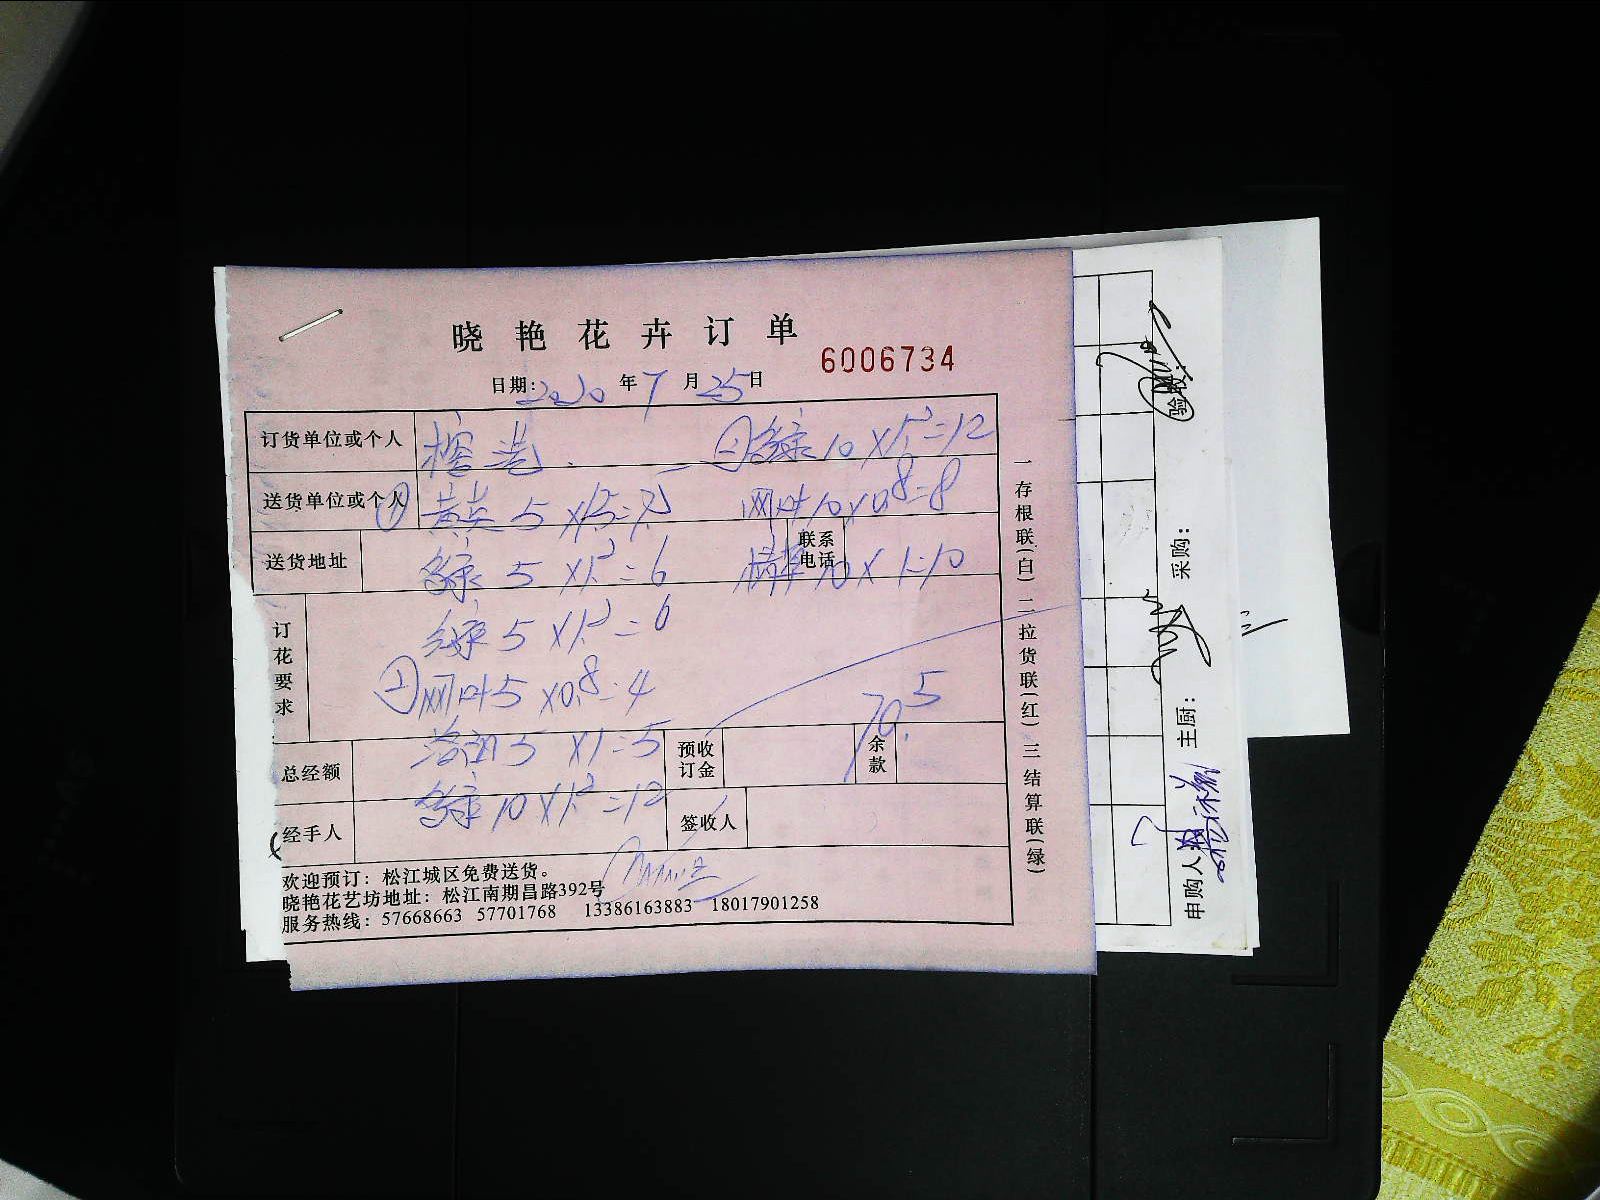 晓艳花卉订单
6006734
日期:2020年7月25日
订货单位或个人
② 10 X 1.2=12
送货单位或个人
① 5 X1.5=7.5
网叶10 X0.8=8
送货地址
5 X1.2=6
联系电话
10 X 1=10
订花要求
5 X1.2=6
②网叶5 X0.8=4
70.5
5 X1=5
总经额
预收订金
余款
10 X1.2=12
经手人
签收人
欢迎预订:松江城区免费送货。
晓艳花艺坊地址:松江南期昌路392号
服务热线:57668663 57701768 13386163883 18017901258
一存根联(白)二拉货联(红)三结算联(绿)
申购人: 主厨: 采购: 验收: